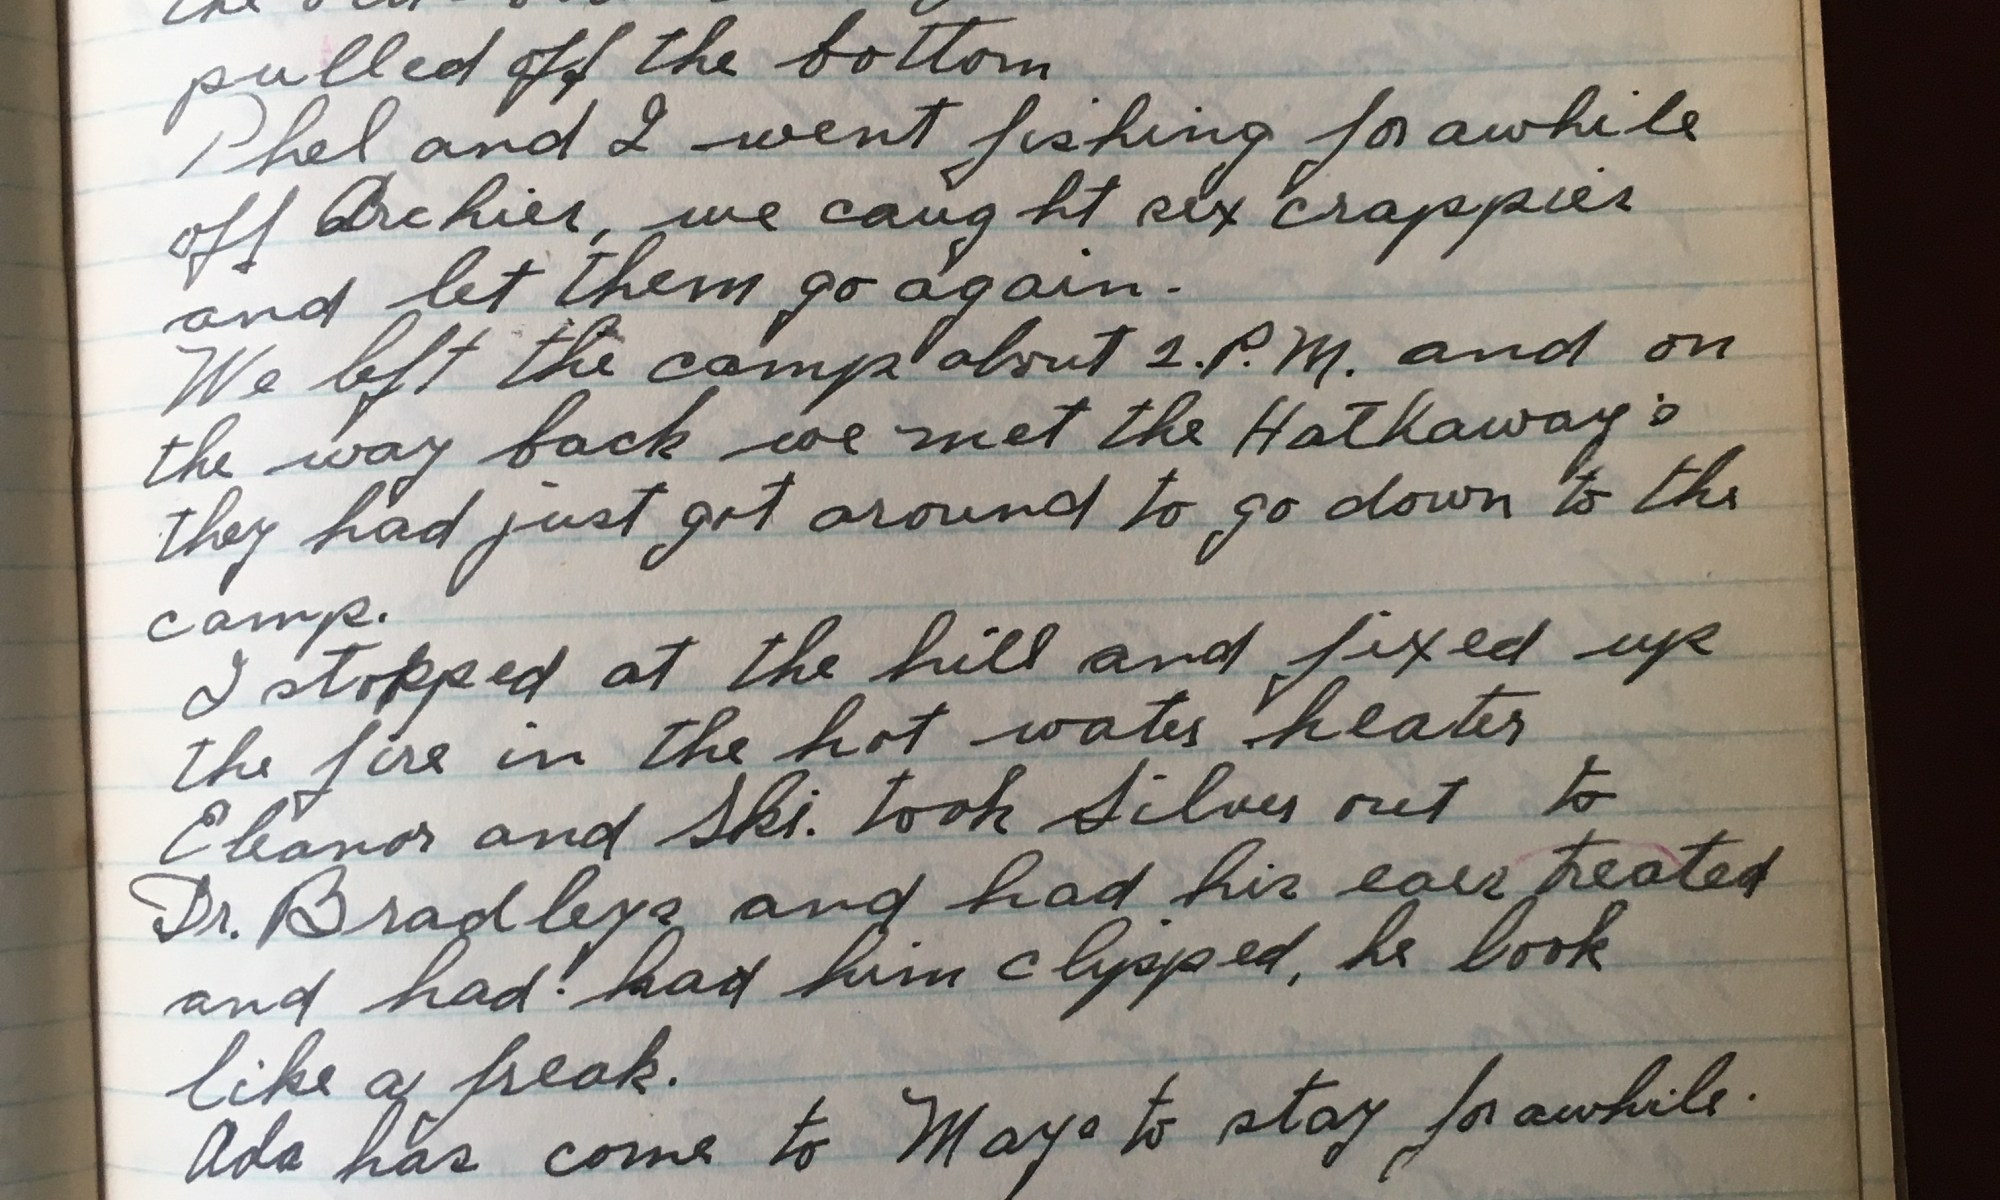 the
pulled off the bottom
Phel and I went fishing for awhile
off Archies, we caught six crappies
and let them go again.
We left the camp about 2.P.M. and on
the way back we met the Hathaway's
they had just got around to go down to the
camp.
I stopped at the hill and fixed up
the fire in the hot water heater
Eleanor and Ski. took Silver out to
Dr. Bradleys and had his ears treated
and had! had him clipped, he look
like a freak.
Ada has come to Mays to stay for awhile.